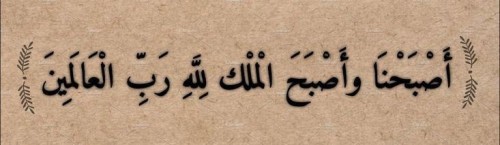 أَصْبَحْنَا وأَصْبَحَ الْمْلْك لِلَّهِ رَبِّ الْعَالَمِينَ